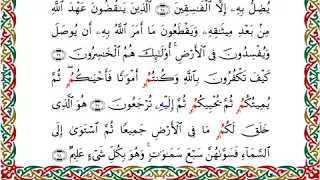 يُضِلُّ بِهِۦ إِلَّا ٱلْفَٰسِقِينَ ٱلَّذِينَ يَنقُضُونَ عَهْدَ ٱللَّهِ
مِنۢ بَعْدِ مِيثَٰقِهِۦ وَيَقْطَعُونَ مَآ أَمَرَ ٱللَّهُ بِهِۦٓ أَن يُوصَلَ
وَيُفْسِدُونَ فِى ٱلْأَرْضِ أُو۟لَٰٓئِكَ هُمُ ٱلْخَٰسِرُونَ
كَيْفَ تَكْفُرُونَ بِٱللَّهِ وَكُنتُمُۥٓ أَمْوَٰتًا فَأَحْيَٰكُمۥ ثُمَّ
يُمِيتُكُمُۥ ثُمَّ يُحْيِيكُمُۥ ثُمَّ إِلَيْهِۦ تُرْجَعُونَ هُوَ ٱلَّذِى
خَلَقَ لَكُمُۥ مَا فِى ٱلْأَرْضِ جَمِيعًا ثُمَّ ٱسْتَوَىٰٓ إِلَى
ٱلسَّمَآءِ فَسَوَّىٰهُنَّ سَبْعَ سَمَٰوَٰتٍ ۚ وَهُوَ بِكُلِّ شَىْءٍ عَلِيمٌ